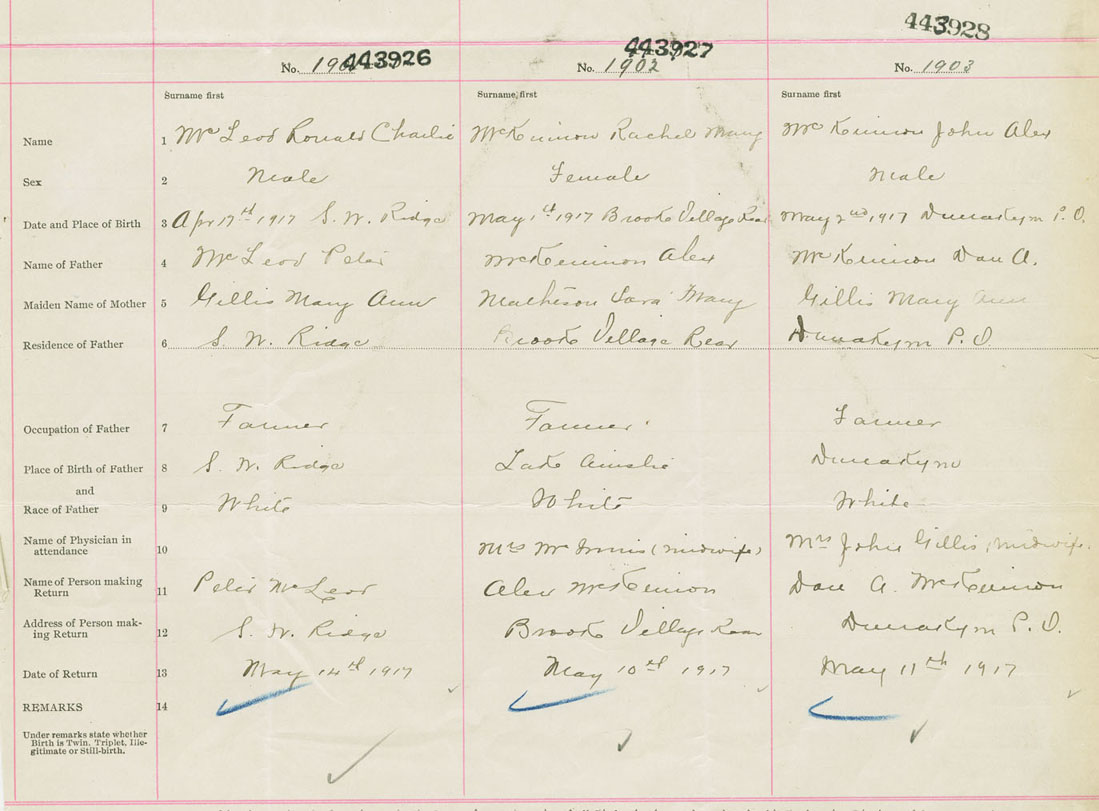 443928
No. 190 443926 No. 1902 443927 No. 1903
Surname first Surname, first Surname first
Name 1 Mc Leod Ronald Charlie McKinnon Rachel Mary Mc Kinnon John Alex
Sex 2 Male Female Male
Date and Place of Birth 3 Apr 17th 1917 S. W. Ridge May 1st 1917 Brook Village Rear May 2nd 1917 Dunakyn P. O.
Name of Father 4 Mc Leod Peter McKinnon Alex Mc Kinnon Dan A.
Maiden Name of Mother 5 Gillis Mary Ann Matheson Sara Mary Gillis Mary Ann
Residence of Father 6 S. W. Ridge Brook Village Rear Dunakyn P. O
Occupation of Father 7 Farmer Farmer Farmer
Place of Birth of Father 8 S. W. Ridge Lake Ainslie Dunakyn
and
Race of Father 9 White White White
Name of Physician in
attendance 10 Mrs Mc (midwife) Mrs John Gillis, midwife
Name of Person making
Return 11 Peter McLeod Alex McKinnon Dan A. McKinnon
Address of Person mak-
ing Return 12 S. W. Ridge Brook Village Rear Dunakyn P. O.
Date of Return 13 May 14th 1917 May 10th 1917 May 11th 1917
REMARKS 14
Under remarks state whether
Birth is Twin, Triplet, Ille-
gitimate or Still-birth.